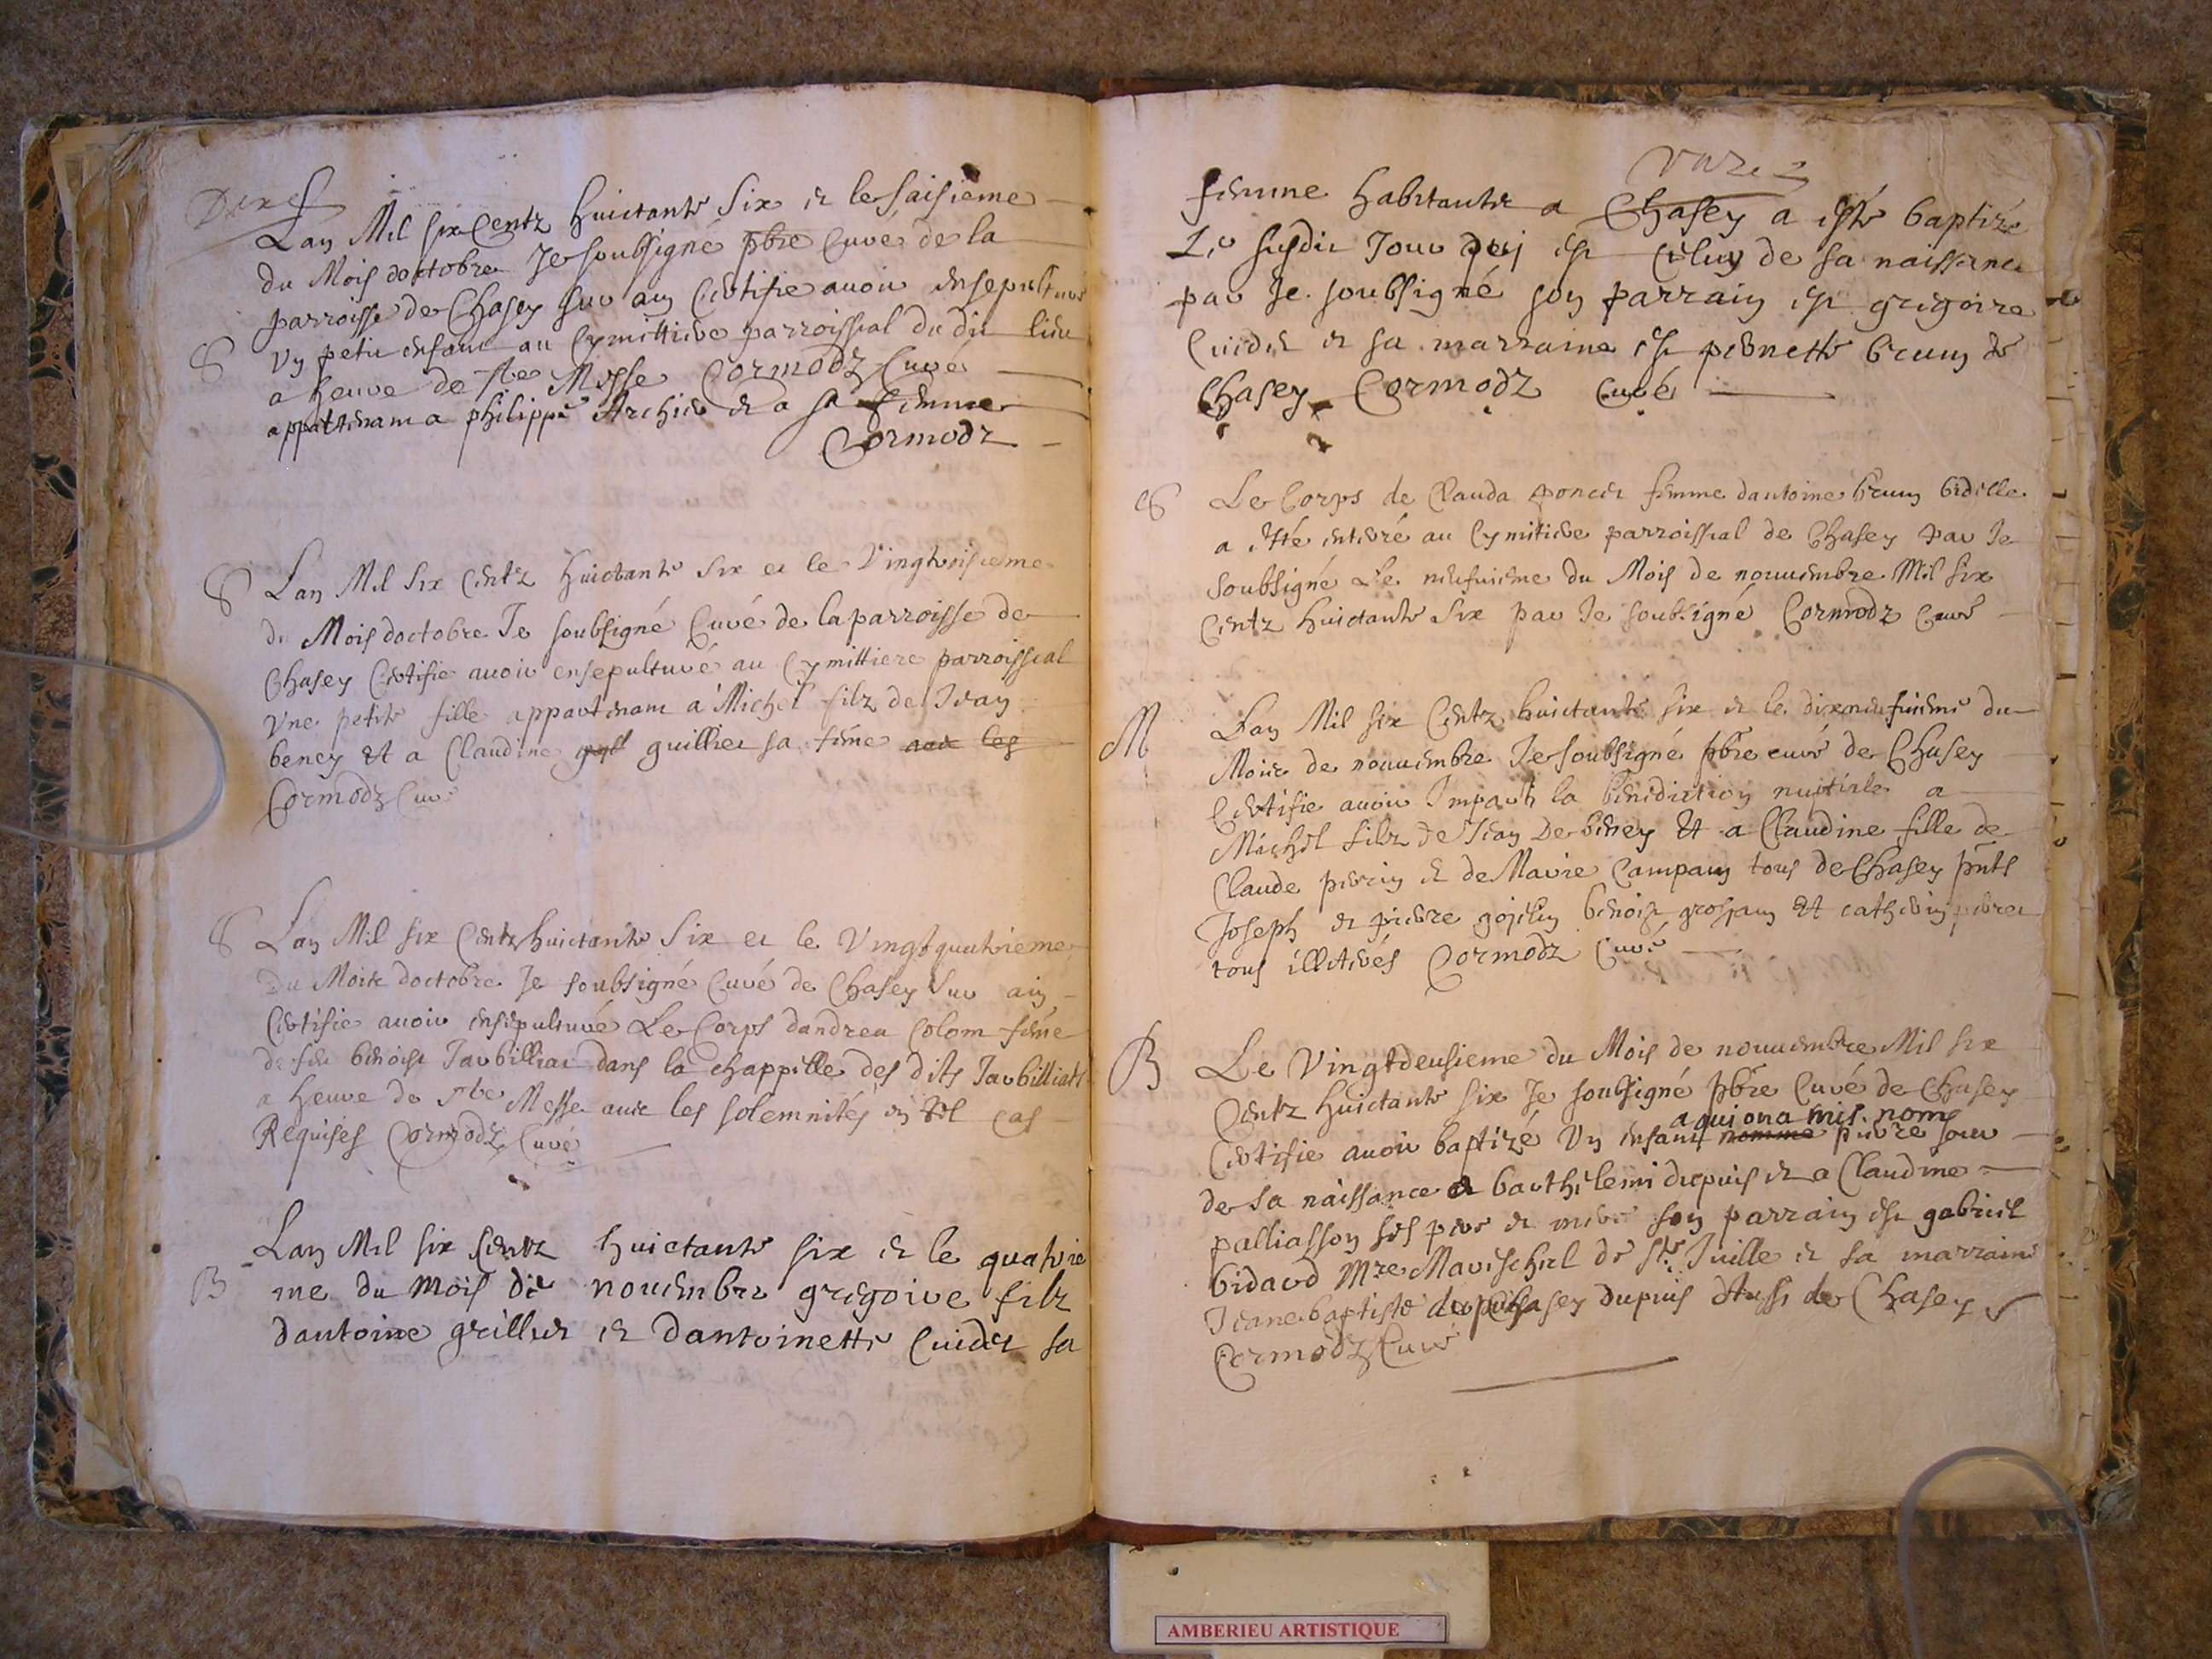 Lan Mil six Centz huictante six et le saisieme
du Mois doctobre Je soubsigné pbre Curé de la
parroisse de Chasey sur ain Certifie auoir ensepulturé
S Vn petit enfant au Cymittiere parroissial du dit lieu
a heure de ste Messe Cormodz Curé
appartenant a philippe Archier et a sa femme
Cormodz
S Lan Mil Six Centz huictante Six et le Vingtroisieme
du Mois doctobre Je soubsigné Curé de la parroisse de
Chasey Certifie auoir ensepulturé au Cymittiere parroissial
Vne petite fille appartenant a Michel filz de Jean
beney Et a Claudine guilliet sa féme auec les
Cormodz Curé
S Lan Mil six Centz huictante Six et le Vingtquatrieme
Du Mois doctobre Je soubsigné Curé de Chasey Sur ain
Certifie auoir ensepulturé Le Corps dandrea Colom féme
de feu benoist Jarbilliat dans la chappelle des dits Jarbilliats
a heure de ste Messe auec les solemnités en tel cas
Requises Cormodz Curé
Lan Mil six Centz huictante six et le quatrie
B me du mois de nouembre gregoire filz
dantoine grillet et dantoinette Cuidet sa
femme habitante a Chasey a esté baptizé
Le susdit Jour qui est celuy de sa naissance
par Je soubsigné son parrain est gregoire
Cuidet et sa marraine est pernette brun de
Chasey Cormodz Curé
S Le Corps de Clauda poncet femme dantoine brun bidelle
a esté enterré au Cymitiere parroissial de Chasey Par Je
soubsigné Le neufuieme du Mois de nouuembre Mil six
Centz huictante Six par Je soubsigné Cormodz Curé
M Lan Mil six Centz huictante six et le dixneufuieme du
Mois de nouuembre Je soubsigné pbre curé de Chasey
Certifie auoir Imparti la benediction nuptiale a
Michel filz de Jean De beney Et a Claudine fille de
Claude perrin et de Marie Campan tous de Chasey pnts
Joseph et pierre gojelin benoist grosjean Et catherin
tous illiterés Cormodz Curé
B Le Vingtdeusieme du Mois de nouuembre Mil six
Centz huictante six Je soubsigné pbre Curé de Chasey
a qui on a mis nom
Certifie auoir baptizé Vn enfant nomme pierre jour
de sa naissance a barthelemi dupuis et a Claudine
palliasson ses pere et mere son parrain est gabriel
bidard Mre Mareschal de st Juille et sa marraine
Jeane baptiste dupuis Chasey dupuis Aussi de Chasey
Cormodz Curé
AMBERIEU ARTISTIQUE